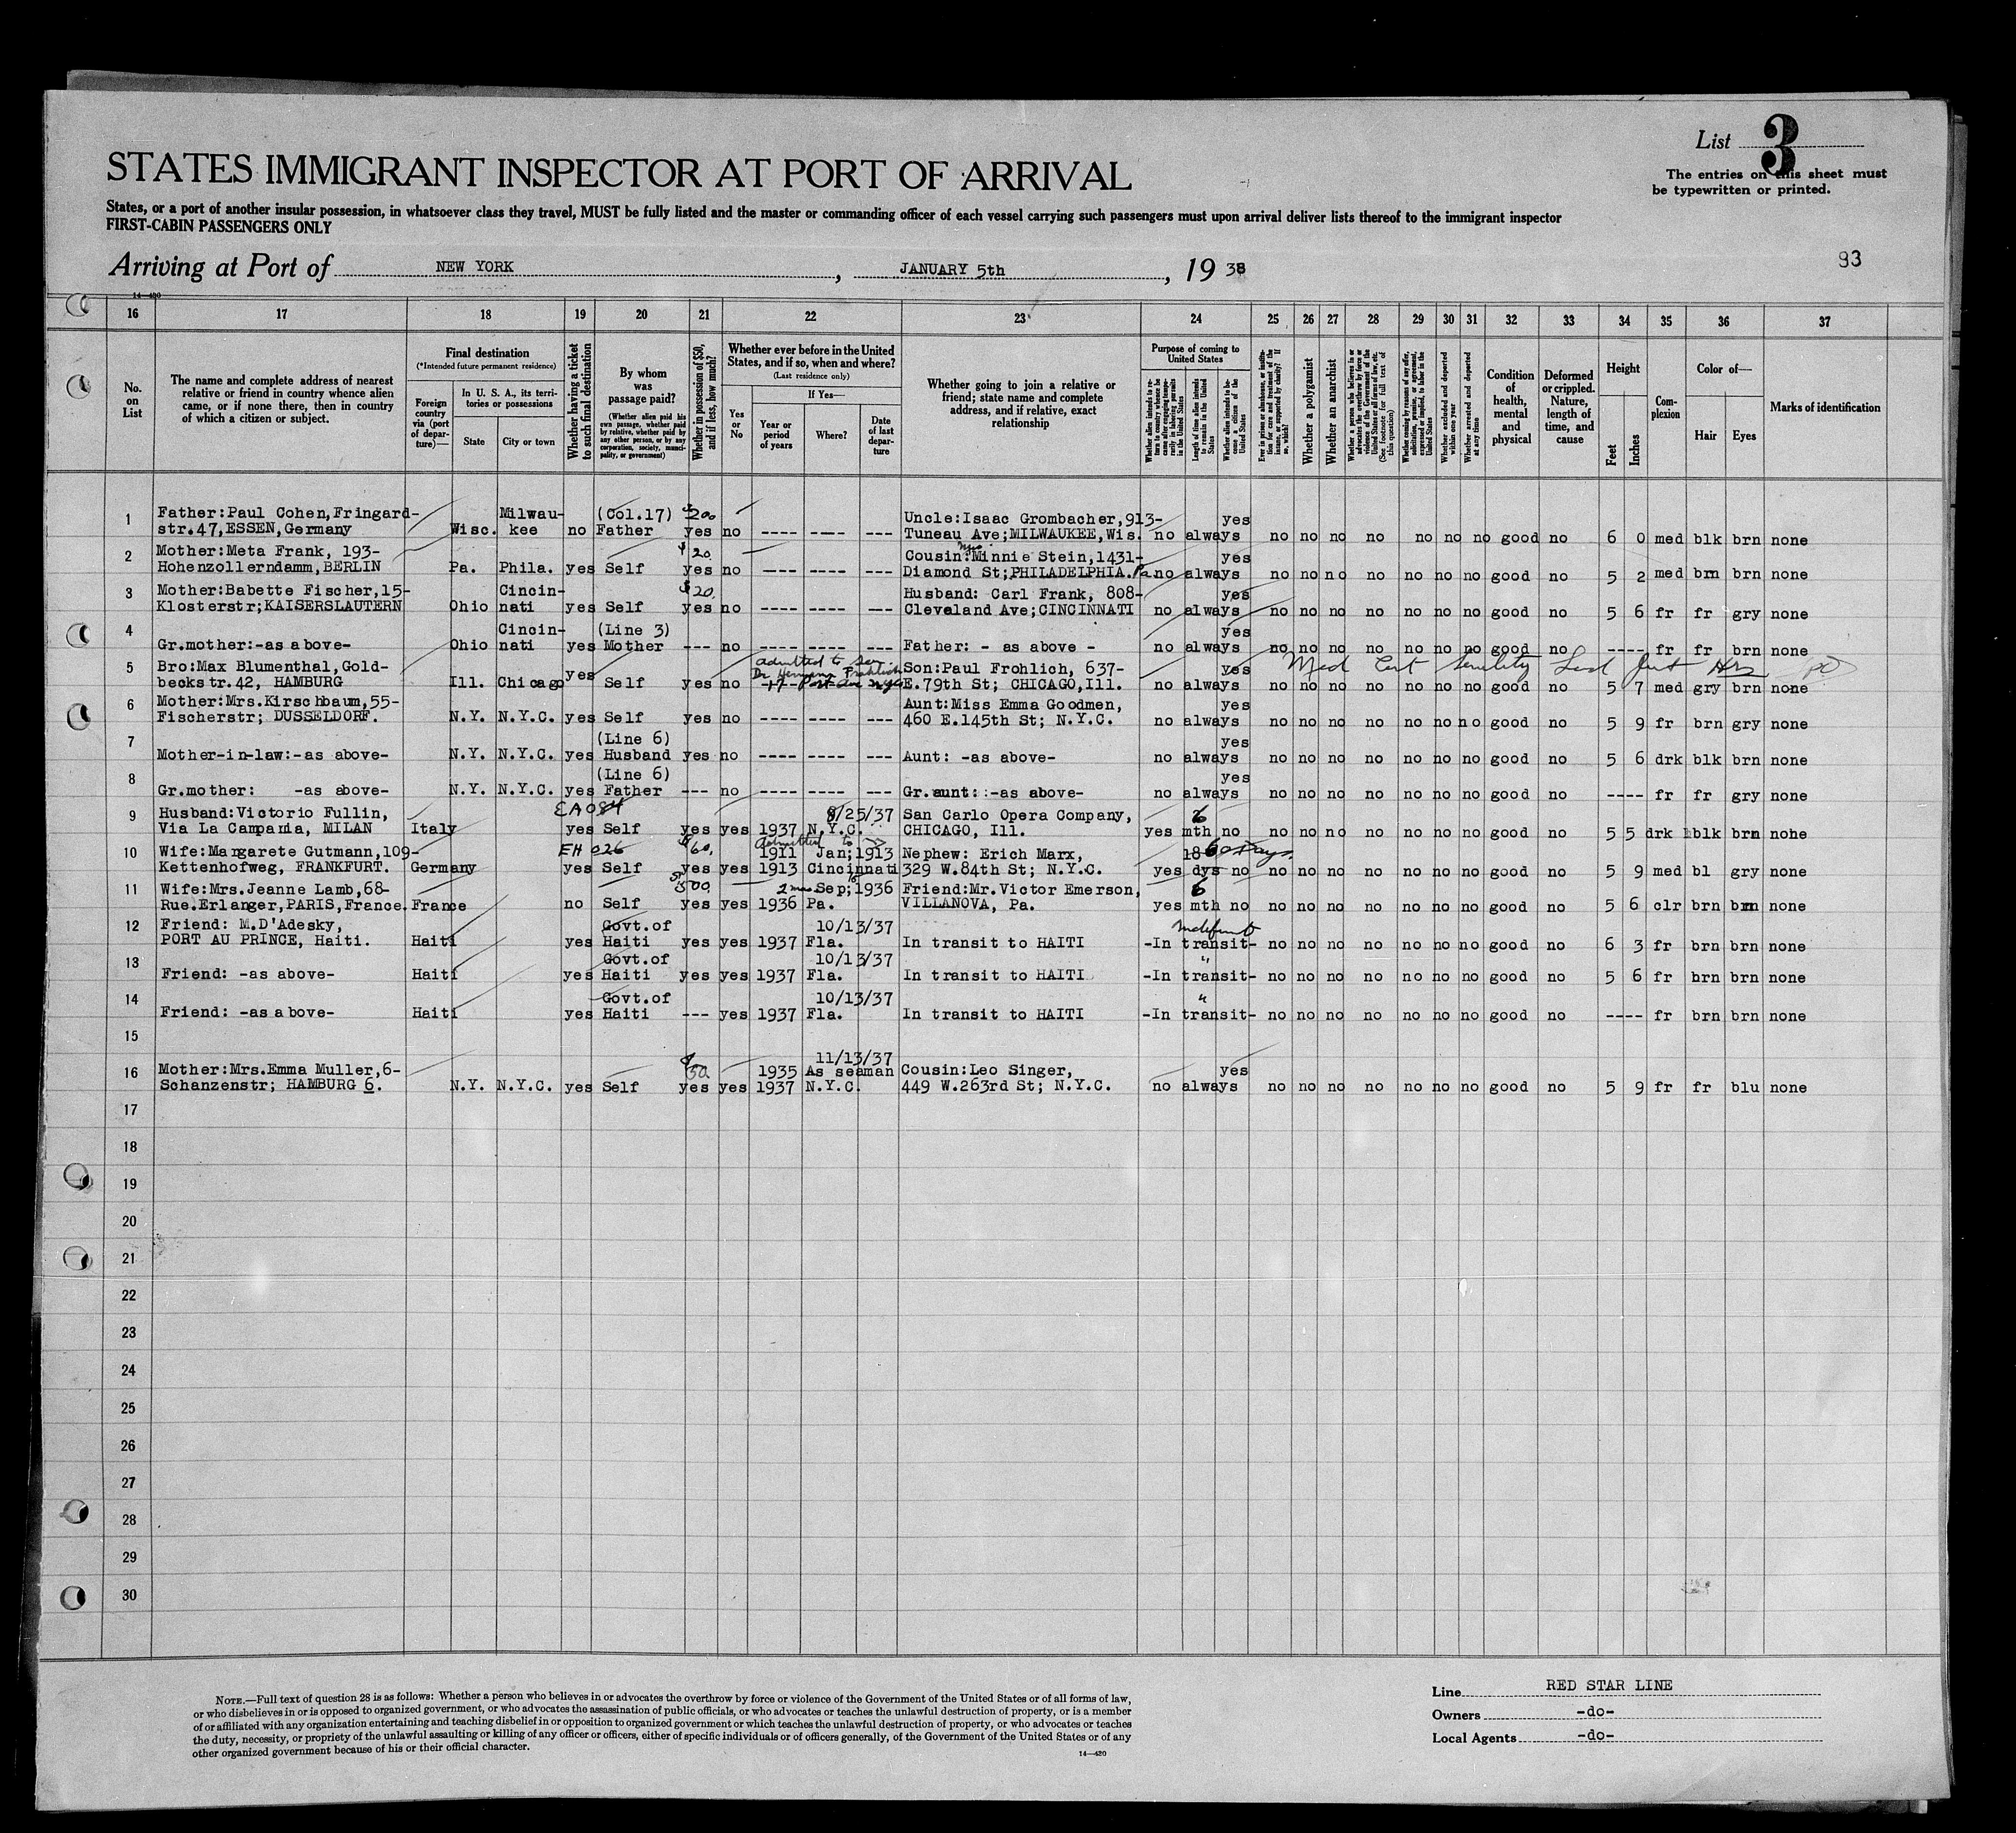 List 3
The entries on this sheet must
be typewritten or printed.
STATES IMMIGRANT INSPECTOR AT PORT OF ARRIVAL
States, or a port of another insular possession, in whatsoever class they travel, MUST be fully listed and the master or commanding officer of each vessel carrying such passengers must upon arrival deliver lists thereof to the immigrant inspector
FIRST-CABIN PASSENGERS ONLY
Arriving at Port of NEW YORK, JANUARY 5th, 1938
93
14—420
16 17 18 19 20 21 22 23 24 25 26 27 28 29 30 31 32 33 34 35 36 37
No.
on
List
The name and complete address of nearest
relative or friend in country whence alien
came, or if none there, then in country
of which a citizen or subject.
Final destination
(*Intended future permanent residence)
Foreign
country
via (port
of depar-
ture)—
In U. S. A., its terri-
tories or possessions
State
City or town
Whether having a ticket
to such final destination
By whom
was
passage paid?
(Whether alien paid his
own passage, whether paid
by relative, whether paid by
any other person, or by any
corporation, society, munici-
pality, or government)
Whether in possession of $50,
and if less, how much?
Whether ever before in the United
States, and if so, when and where?
(Last residence only)
Yes
or
No
If Yes—
Year or
period
of years
Where?
Date
of last
depar-
ture
Whether going to join a relative or
friend; state name and complete
address, and if relative, exact
relationship
Purpose of coming to
United States
Whether alien intends to re-
turn to country whence he
came after engaging tempo-
rarily in laboring pursuits
in the United States
Length of time alien intends
to remain in the United
States
Whether alien intends to be-
come a citizen of the
United States
Ever in prison or almshouse, or institu-
tion for care and treatment of the
insane, or supported by charity? If
so, which?
Whether a polygamist
Whether an anarchist
Whether a person who believes in or
advocates the overthrow by force or
violence of the Government of the
United States or all forms of law, etc.
(See footnote for full text of
this question)
Whether coming by reasons of any offer,
solicitation, promise, or agreement,
expressed or implied, to labor in the
United States
Whether excluded and deported
within one year
Whether arrested and deported
at any time
Condition
of
health,
mental
and
physical
Deformed
or crippled.
Nature,
length of
time, and
cause
Height
Feet
Inches
Com-
plexion
Color of—
Hair
Eyes
Marks of identification
1 Father:Paul Cohen,Fringard- Milwau- (Col.17) $200 Uncle:Isaac Grombacher,913- yes
str.47,ESSEN,Germany Wisc. kee no Father yes no ---- ---- --- Tuneau Ave;MILWAUKEE,Wis. no always no no no no no no no good no 6 0 med blk brn none
2 Mother:Meta Frank, 193- $20. Cousin:Mrs Minnie Stein,1431- yes
Hohenzollerndamm,BERLIN Pa. Phila. yes Self yes no ---- ---- --- Diamond St;PHILADELPHIA.Pa no always no no no no no no no good no 5 2 med brn brn none
3 Mother:Babette Fischer,15- Cincin- $20. Husband: Carl Frank, 808- yes
Klosterstr;KAISERSLAUTERN Ohio nati yes Self yes no ---- ---- --- Cleveland Ave;CINCINNATI no always no no no no no no no good no 5 6 fr fr gry none
4 Cincin- (Line 3) yes
Gr.mother:-as above- Ohio nati yes Mother --- no ---- ---- --- Father: - as above - no always no no no no no no no good no ---- fr fr brn none
5 Bro:Max Blumenthal,Gold- yes admitted to son Dr Hermann Frohlich Son:Paul Frohlich, 637- yes Med Cert Senility
beckstr.42, HAMBURG Ill. Chicago Self yes no E.79th St; CHICAGO,Ill. no always no no no no no no no good no 5 7 med gry brn none
6 Mother:Mrs.Kirschbaum,55- Aunt:Miss Emma Goodmen, yes
Fischerstr; DUSSELDORF. N.Y. N.Y.C. yes Self yes no ---- ---- --- 460 E.145th St; N.Y.C. no always no no no no no no no good no 5 9 fr brn gry none
7 (Line 6) yes
Mother-in-law:-as above- N.Y. N.Y.C. yes Husband yes no ---- ---- --- Aunt: -as above- no always no no no no no no no good no 5 6 drk blk brn none
8 (Line 6) yes
Gr.mother: -as above- N.Y. N.Y.C. yes Father --- no ---- ---- --- Gr.aunt: :-as above- no always no no no no no no no good no ---- fr fr gry none
9 Husband:Victorio Fullin, EA 084 8/25/37 San Carlo Opera Company, 6
Via La Campania, MILAN Italy yes Self yes yes 1937 N.Y.C. CHICAGO, Ill. yes mth no no no no no no no no good no 5 5 drk blk brn none
10 Wife:Margarete Gutmann,109- EH 026 $60. admitted to 1911 Jan;1913 Nephew: Erich Marx, 18 60 days
Kettenhofweg, FRANKFURT. Germany yes Self yes yes 1913 Cincinnati 329 W.84th St; N.Y.C. yes dys no no no no no no no no good no 5 9 med bl gry none
11 Wife:Mrs.Jeanne Lamb,68- $500 2 mos Sep;1936 Friend:Mr.Victor Emerson, 6
Rue.Erlanger,PARIS,France. France no Self yes yes 1936 Pa. VILLANOVA, Pa. yes mth no no no no no no no no good no 5 6 clr brn brn none
12 Friend: M.D'Adesky, Govt.of 10/13/37
PORT AU PRINCE, Haiti. Haiti yes Haiti yes yes 1937 Fla. In transit to HAITI -In transit- no no no no no no no good no 6 3 fr brn brn none
13 Govt.of 10/13/37 "
Friend: -as above- Haiti yes Haiti yes yes 1937 Fla. In transit to HAITI -In transit- no no no no no no no good no 5 6 fr brn brn none
14 Govt.of 10/13/37 "
Friend: -as above- Haiti yes Haiti --- yes 1937 Fla. In transit to HAITI -In transit- no no no no no no no good no ---- fr brn brn none
15
16 Mother:Mrs.Emma Muller,6- $50. 11/13/37 1935 As seaman Cousin:Leo Singer, yes
Schanzenstr; HAMBURG 6. N.Y. N.Y.C. yes Self yes yes 1937 N.Y.C. 449 W.263rd St; N.Y.C. no always no no no no no no no good no 5 9 fr fr blu none
17
18
19
20
21
22
23
24
25
26
27
28
29
30
NOTE.—Full text of question 28 is as follows: Whether a person who believes in or advocates the overthrow by force or violence of the Government of the United States or of all forms of law,
or who disbelieves in or is opposed to organized government, or who advocates the assassination of public officials, or who advocates or teaches the unlawful destruction of property, or is a member
of or affiliated with any organization entertaining and teaching disbelief in or opposition to organized government or which teaches the unlawful destruction of property, or who advocates or teaches
the duty, necessity, or propriety of the unlawful assaulting or killing of any officer or officers, either of specific individuals or of officers generally, of the Government of the United States or of any
other organized government because of his or their official character.
14—420
Line RED STAR LINE
Owners -do-
Local Agents -do-